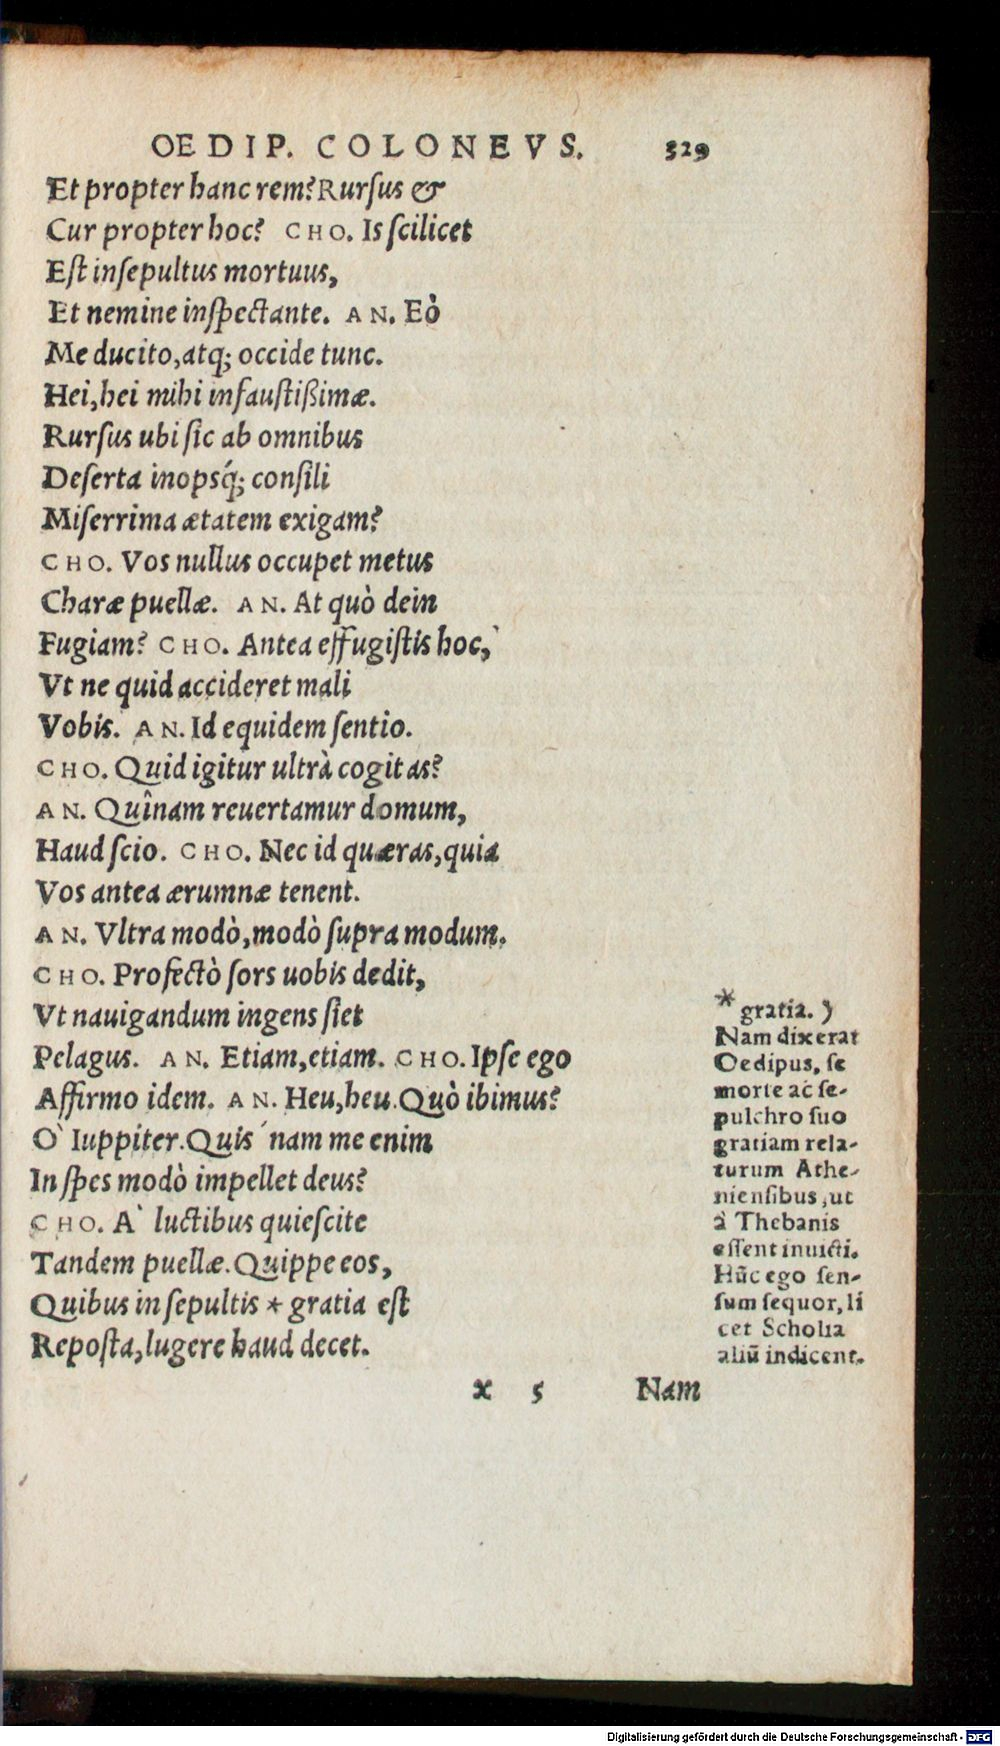 OEDIP. COLONEVS. 329
Et propter hanc rem? Rursus &
Cur propter hoc? CHO. Is scilicet
Est insepultus mortuus,
Et nemine inspectante. AN. Eò
Me ducito, atq; occide tunc.
Hei, hei mihi infaustißimæ.
Rursus ubi sic ab omnibus
Deserta inopsq́; consili
Miserrima ætatem exigam?
CHO. Vos nullus occupet metus
Charæ puellæ. AN. At quò dein
Fugiam? CHO. Antea effugistis hoc,
Vt ne quid accideret mali
Vobis. AN. Id equidem sentio.
CHO. Quid igitur ultrà cogitas?
AN. Quînam reuertamur domum,
Haud scio. CHO. Nec id quæras, quia
Vos antea ærumnæ tenent.
AN. Vltra modò, modò supra modum.
CHO. Profectò sors uobis dedit,
Vt nauigandum ingens siet
Pelagus. AN. Etiam, etiam. CHO. Ipse ego
Affirmo idem. AN. Heu, heu. Quò ibimus?
O` Iuppiter. Quis´nam me enim
In spes modò impellet deus?
CHO. A` luctibus quiescite
Tandem puellæ. Quippe eos,
Quibus in sepultis * gratia est
Reposta, lugere haud decet.
* gratia. )
Nam dixerat
Oedipus, se
morte ac se-
pulchro suo
gratiam rela-
turum Athe-
niensibus, ut
à Thebanis
essent inuicti.
Hũc ego sen-
sum sequor, li
cet Scholia
aliũ indicent.
x 5 Nam
Digitalisierung gefördert durch die Deutsche Forschungsgemeinschaft - DFG